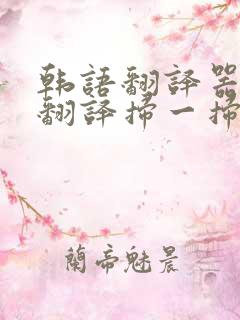 韩語翻譯器
翻譯掃一掃
蘭帝魅晨